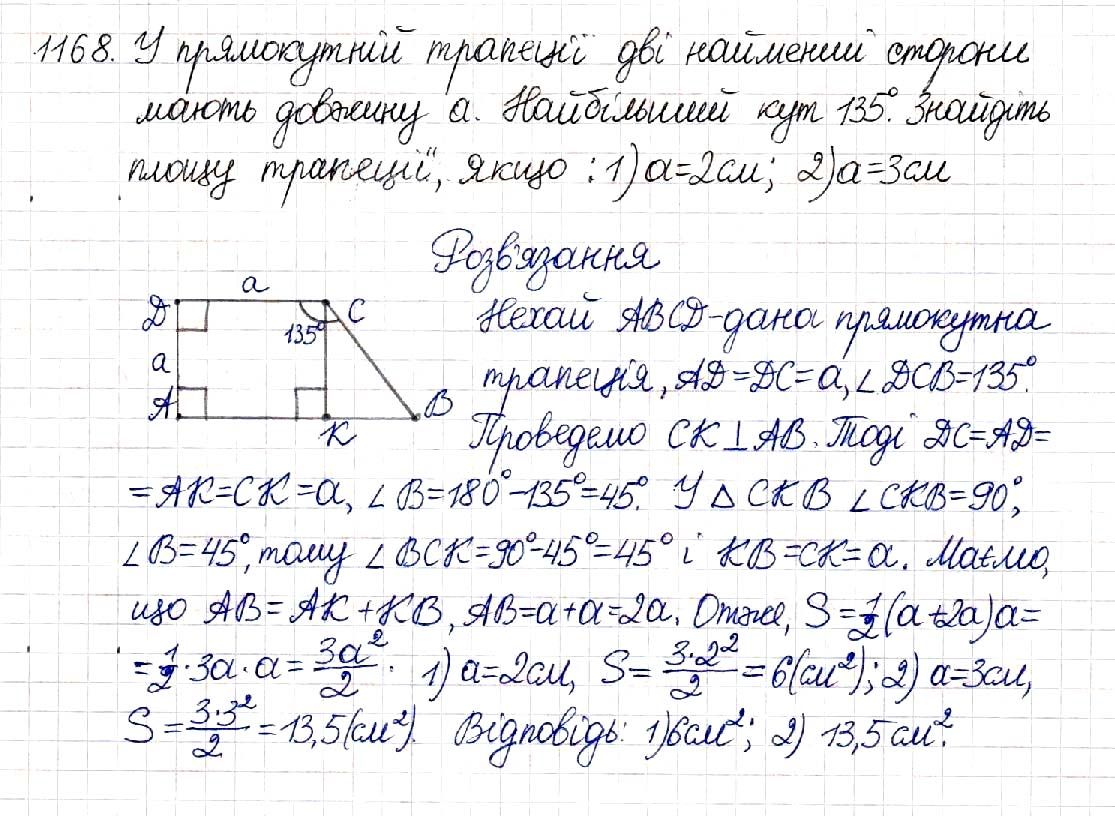 1168. У прямокутній трапеції дві найменші сторони
мають довжину а. Найбільший кут 135°. Знайдіть
площу трапеції, якщо : 1) а=2см; 2) а=3см
Розв'язання
a
D
C
135°
a
A
K
B
Нехай ABCD-дана прямокутна
трапеція, AD=DC=a, ∠DCB=135°.
Проведемо CK⊥AB. Тоді DC=AD=
=AK=CK=a, ∠B=180°-135°=45°. У △CKB ∠CKB=90°,
∠B=45°, тому ∠BCK=90°-45°=45° і KB=CK=a. Маємо,
що AB=AK+KB, AB=a+a=2a. Отже, S=1/2(a+2a)a=
=1/2·3a·a=3a²/2. 1) a=2см, S=3·2²/2=6(см²); 2) a=3см,
S=3·3²/2=13,5(см²). Відповідь: 1)6см²; 2) 13,5см².